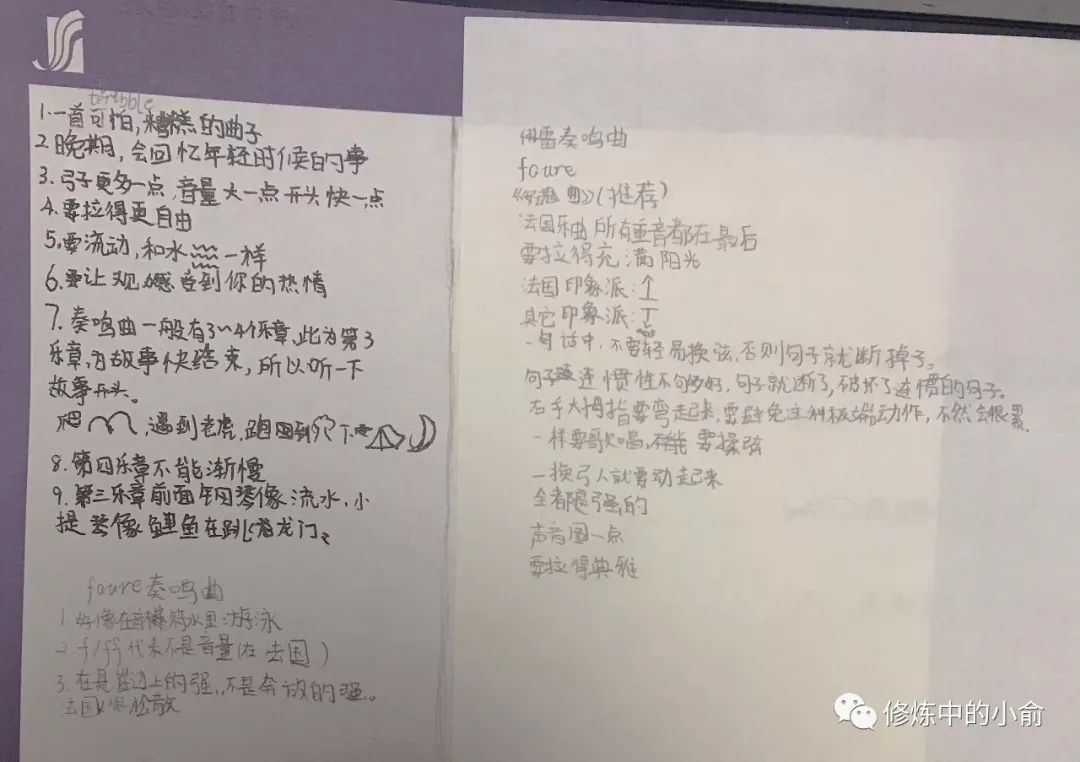 terebble
1.一首可怕,糟糕的曲子
2.晚期,会回忆年轻时候的事
3.弓子更多一点,音量大一点开头快一点
4.要拉得更自由
5.要流动,和水一样
6.要让观感受到你的热情
7.奏鸣曲一般有3~4个乐章,此为第3
乐章,为故事快结束,所以听一下
故事开头。
爬,遇到老虎,跑回到穴下
8.第四乐章不能渐慢
9.第三乐章前面钢琴像流水,小
提琴像鲤鱼在跳龙门
foure奏鸣曲
1.好像在水里游泳
2.f/ff代表不是音量(在法国)
3.在悬崖边上的强,不是奔放的强。
法国人很松散
佛雷奏鸣曲
foure
(推荐)
法国乐曲所有重音都在最后
要拉得充满阳光
法国印象派:↑
其它印象派:
一句话中,不要轻易换弦,否则句子就断掉了。
句子连惯性不够好,句子就断了,破坏了连惯的句子。
右手大拇指要弯起来,要避免这种极端动作,不然会很累
一样要歌唱,要揉弦
一换弓人就要动起来
全都是强的
声音圆一点
要拉得典雅
修炼中的小俞